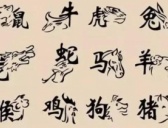 鼠 牛 虎 兔
蛇 马 羊
猴 鸡 狗 猪